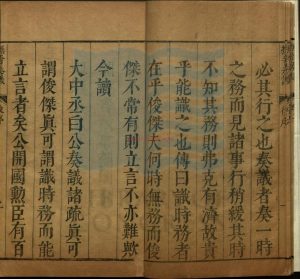 必其行之也奏議者奏一時
之務而見諸事行稍緩其時
不知其務則弗克有濟故貴
乎能識之也傳曰識時務者
在乎俊傑夫何時無務而俊
傑不常有則立言不亦難歟
今讀
大中丞白公奏議諸疏真可
謂俊傑真可謂識時務而能
立言者矣公開國勲臣有百